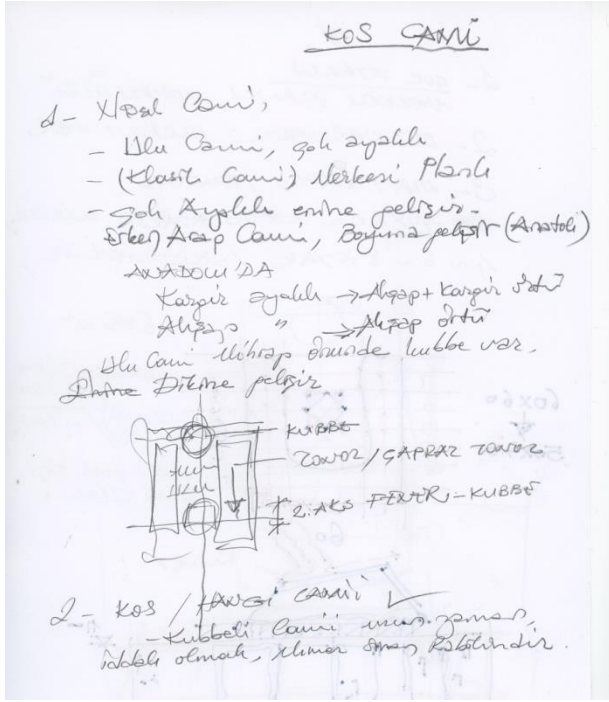 KOS CAMİ
1- Nasıl Cami,
- Ulu Cami, çok ayaklı
- (Klasik Cami) Merkezi Planlı
- Çok Ayaklı enine gelişir.
Erken Arap Cami, Boyuna gelişir (Anatoli)
ANADOLU'DA
Kargir ayaklı → Ahşap + Kargir örtü
Ahşap " → Ahşap örtü
Ulu Cami Mihrap önünde kubbe var.
Dikine gelişir
KUBBE
TONOZ / ÇAPRAZ TONOZ
2. AKS FENER - KUBBE
2- KOS / HANGİ CAMİİ
- Kubbeli Cami uzun zaman,
iddialı olmak, Mimar Sinan